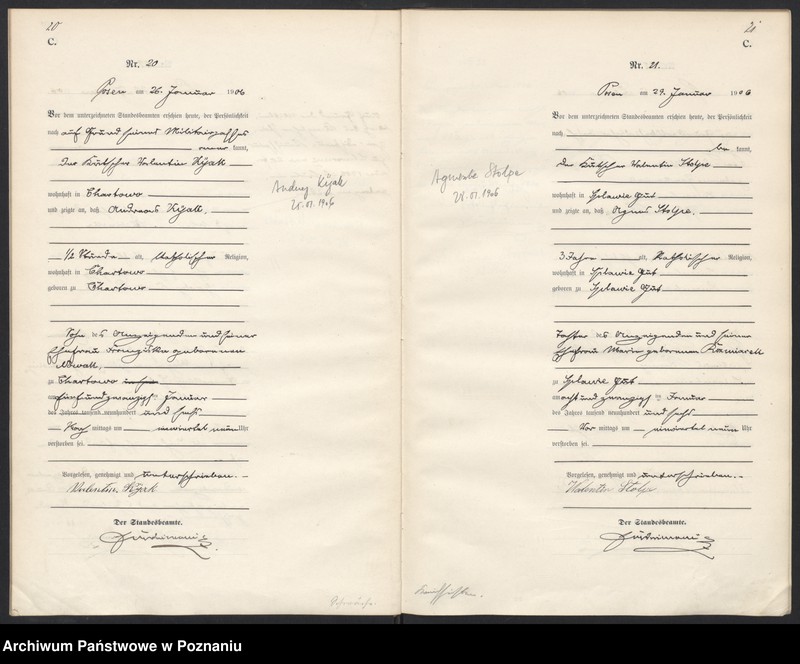 20
C.
Nr. 20
Posen am 26. Januar 1906
Vor dem unterzeichneten Standesbeamten erschien heute, der Persönlichkeit
nach auf Grund seines Militairpasses
kannt,
Der Kutscher Valentin Kijak
wohnhaft in Chartowo
und zeigte an, daß Andreas Kijak,
1/2 Stunde alt, katholischer Religion,
wohnhaft in Chartowo
geboren zu Chartowo
Sohn des Anzeigenden und seiner
Ehefrau Franziska geborenen
Nowak,
zu Chartowo
am fünfundzwanzigsten Januar
des Jahres tausend neunhundert und sechs
Nach mittags um neun Uhr
verstorben sei.
Vorgelesen, genehmigt und unterschrieben.
Valentin Kijak
Der Standesbeamte.
Andrzej Kijak
25.01.1906
Schwäche.
21
C.
Nr. 21.
Posen am 29. Januar 1906
Vor dem unterzeichneten Standesbeamten erschien heute, der Persönlichkeit
nach
be kannt,
Der Kutscher Valentin Stolpe
wohnhaft in Splawie Gut
und zeigte an, daß Agnes Stolpe,
3 Jahre alt, katholischer Religion,
wohnhaft in Splawie Gut
geboren zu Splawie Gut
Tochter des Anzeigenden und seiner
Ehefrau Maria geborenen
zu Splawie Gut
am achtundzwanzigsten Januar
des Jahres tausend neunhundert und sechs
Vor mittags um neun Uhr
verstorben sei.
Vorgelesen, genehmigt und unterschrieben.
Walentin Stolpe
Der Standesbeamte.
Agnieszka Stolpe
28.01.1906
Archiwum Państwowe w Poznaniu